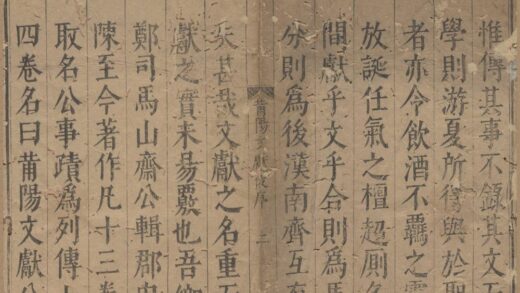 惟傳其事不錄其文
學則游夏所得與於
者亦令飲酒不羈之
放誕任氣之檀超厠名
間獻乎文乎合則為馬
分則為後漢南齊互有
莆陽文獻後序 二
矣甚哉文獻之名重
獻之實未易覈也吾鄉
鄭司馬山齋公輯郡
陳至今著作凡十三卷
取名公事蹟為列傳
四卷名曰莆陽文獻